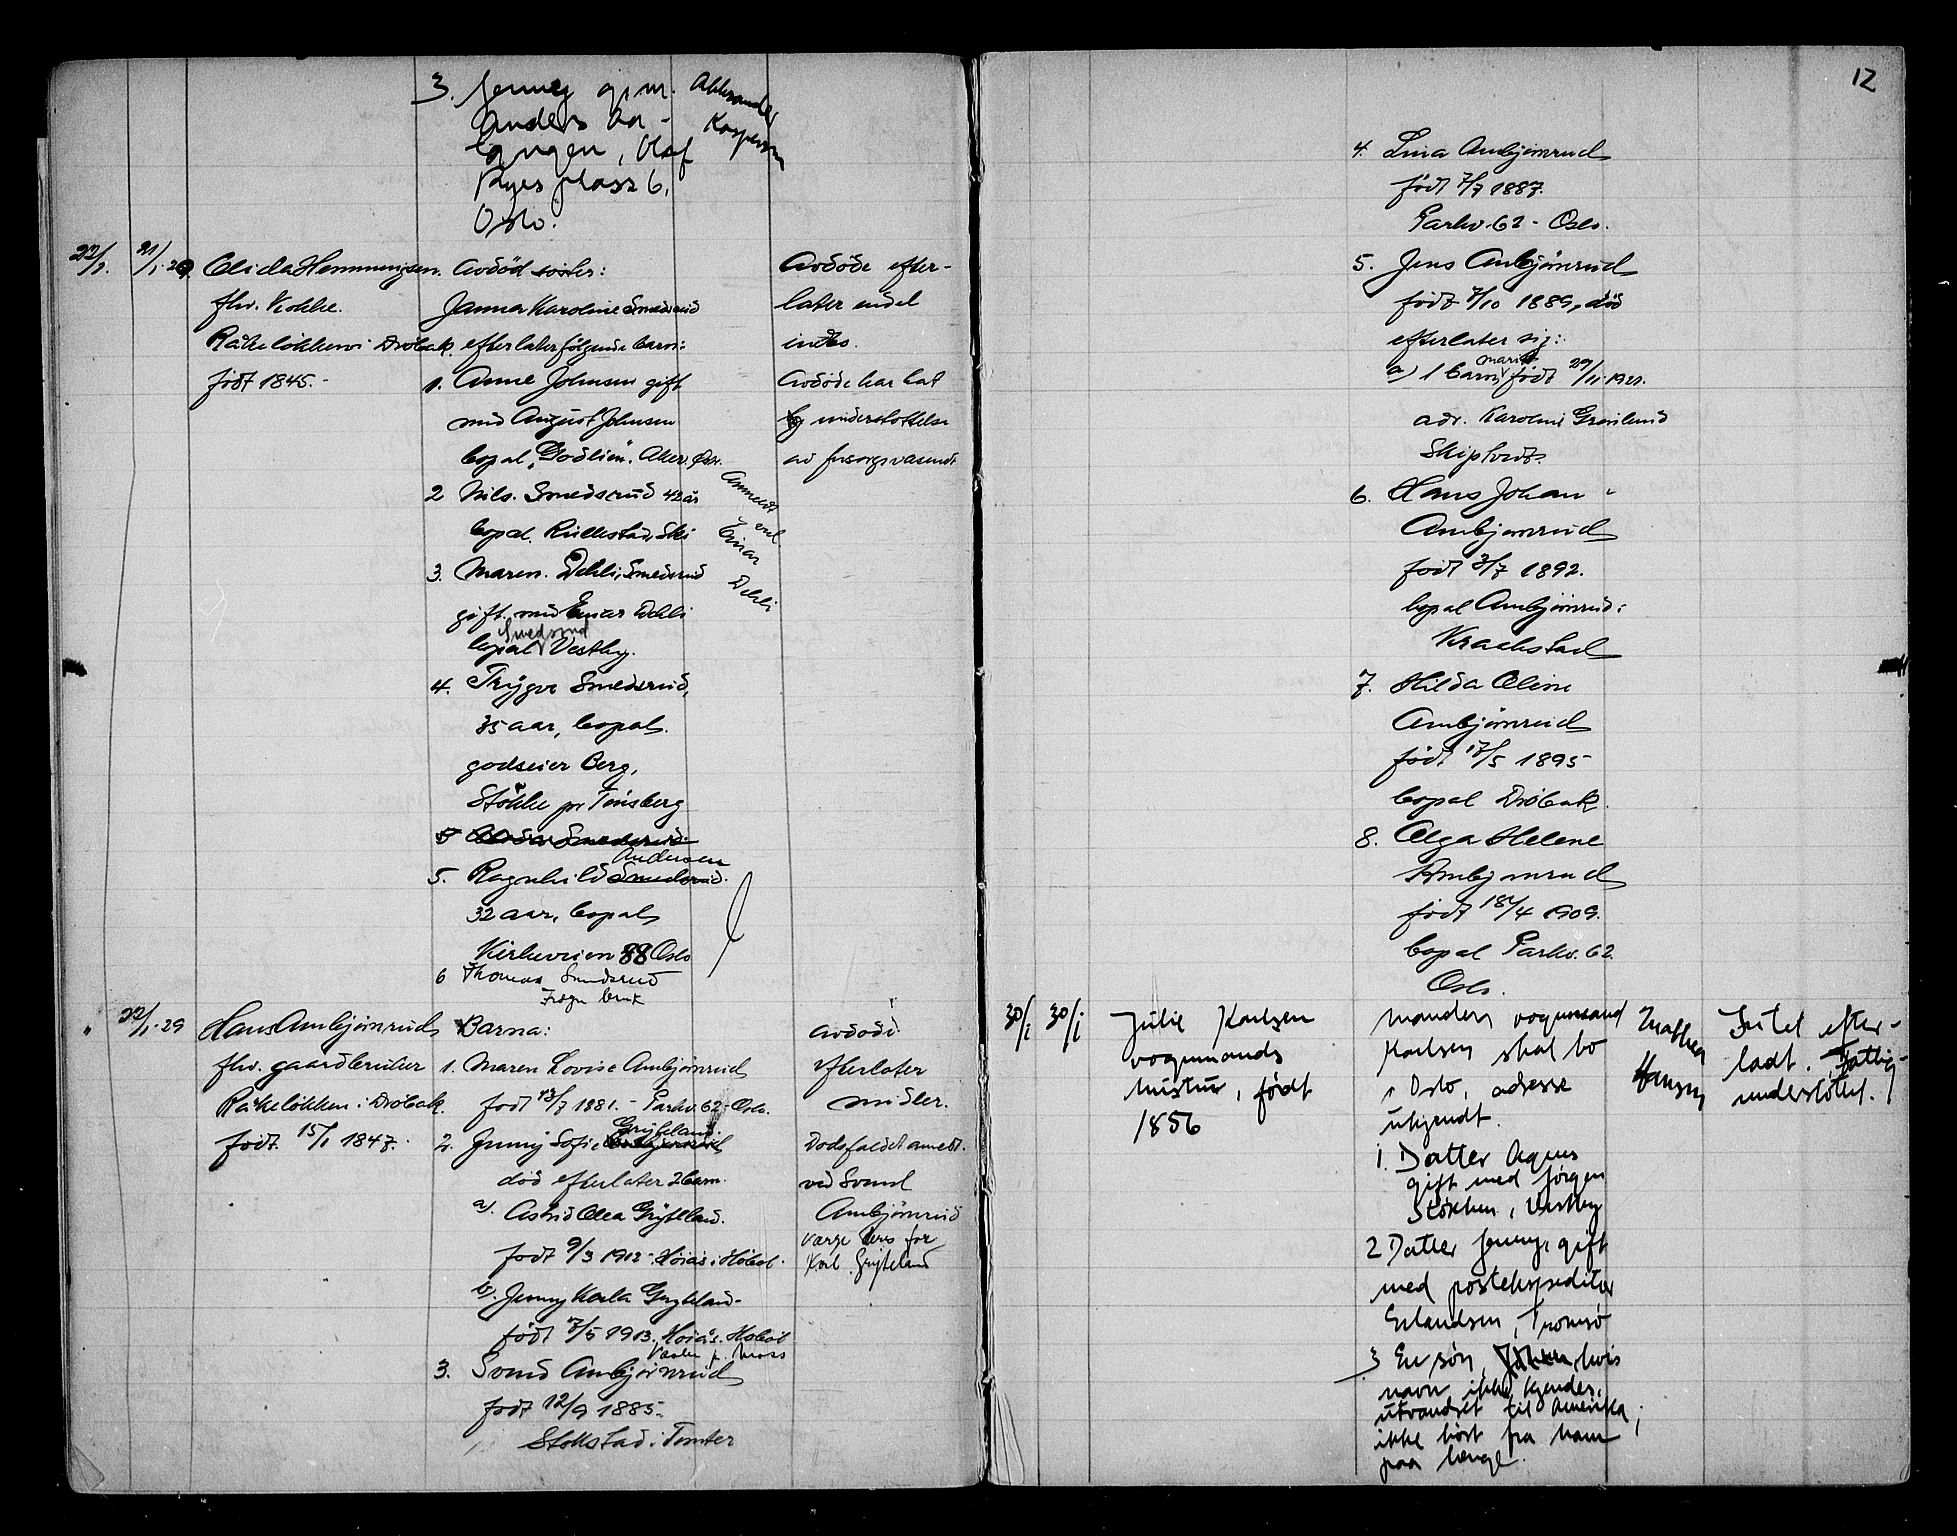 3. Jenny g.m.
Anders
Olaf
Ryes plass 6,
Oslo.
22/1. 21/1.29. Elida Hemmingsen.
fhv. Kokke.
Råkeløkken i Drøbak.
født 1845.-
Avdød søster:
Janna Karoline Smedsrud
efterlater følgende barn:
1. Anne Johnsen gift
med August Johnsen
bopæl
2 Nils. Smedsrud 42 år
bopæl. Ski
3. Maren. Dehli, Smedsrud
gift. med Einar Dehli
Smedsrud
bopæl Vestby.
4. Trygve Smedsrud,
35 aar, bopæl.
godseier Berg,
Stokke pr Tønsberg
Andersen
5. Ragnhild Smedsrud.
32 aar, bopæl,
Kirkeveien 88 Oslo
6 Thomas Smedsrud
Frogn bruk
Anmeldt
ved
Einar
Dehli
Avdøde efter-
later endel
indbo.
Avdøde har hat
understøttelse
av forsorgsvæsenet
" 22/1.29 Hans Ambjørnrud
fhv. gaardbruker
Råkeløkken i Drøbak.
født 15/1 1847.
Barna:
1. Maren Lovise Ambjørnrud
født 13/7 1881. - Parkv. 62 - Oslo.
2. Jenny Sofie
død efterlater 2 barn.
a). Astrid Olea
født 9/3 1912 - Høiås i Hobøl.
b). Jenny Karla
født 7/5 1913. Høiås. Hobøl
3. Svend Ambjørnrud
født 12/9 1885.
Stokstad i Tomter
avdøde
efterlater
midler.
Dødsfaldet anmeldt.
ved Svend
Ambjørnrud
12
4. Lina Ambjørnrud
født 7/7 1887.
Parkv. 62 - Oslo.
5. Jens Ambjørnrud
født 7/10 1889, død
efterlater sig:
a) 1 barn født 29/11 1921.
adr. Karoline Grønlund
Skiptvedt.
6. Hans Johan
Ambjørnrud
født 3/7 1892.
bopæl Ambjørnrud:
Kraakstad
7. Hilda Oline
Ambjørnrud
født 17/5 1895
bopæl Drøbak.
8. Olga Helene
Ambjørnrud
født 18/4 1909.
bopæl Parkv. 62.
Oslo.
30/1 30/1 Julie Karlsen
vognmands
hustru, født
1856
Manden, vognmand
Karlsen skal bo
i Oslo, adresse
ukjendt.
1. Datter Agnes
gift med Jørgen
Støkken, Vestby
2 Datter Jenny, gift
med postekspeditør
Erlandsen, Tromsø
3 En søn, hvis
navn ikke kjendes,
utvandret til Amerika;
ikke hørt fra ham
paa længe.
Mathea
Hansen
Intet efter-
ladt. Fattig-
understøttet.